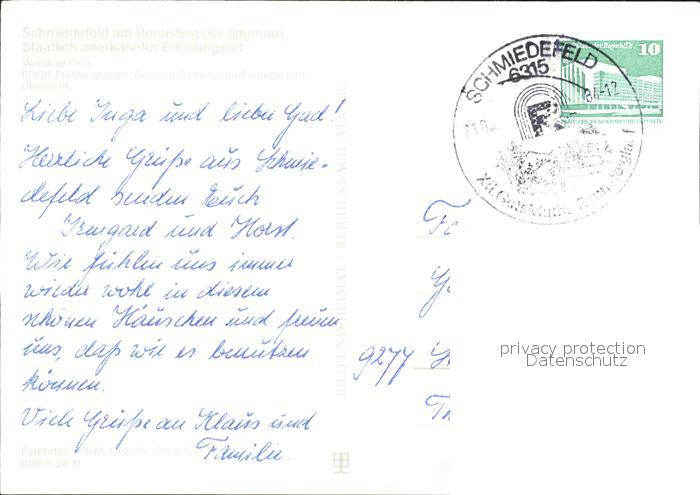 Schmiedefeld am Rennsteig (Kr. Ilmenau)
Staatlich anerkannter Erholungsort
Waldbad Crux
FDGB-Erholungsheim „Deutsch-Sowjetische-Freundschaft“
Übersicht
Liebe Inga und lieber Gud!
Herzliche Grüße aus Schmie-
defeld senden Euch
Irmgard und Horst.
Wir fühlen uns immer
wieder wohl in diesem
schönen Häuschen und freuen
uns, daß wir es benutzen
können.
Viele Grüße an Klaus und
Familie.
DDR 0,20 M
BILD UND HEIMAT · REICHENBACH
SCHMIEDEFELD
6315
10
DEUTSCHE DEMOKRATISCHE REPUBLIK
9277
privacy protection
Datenschutz